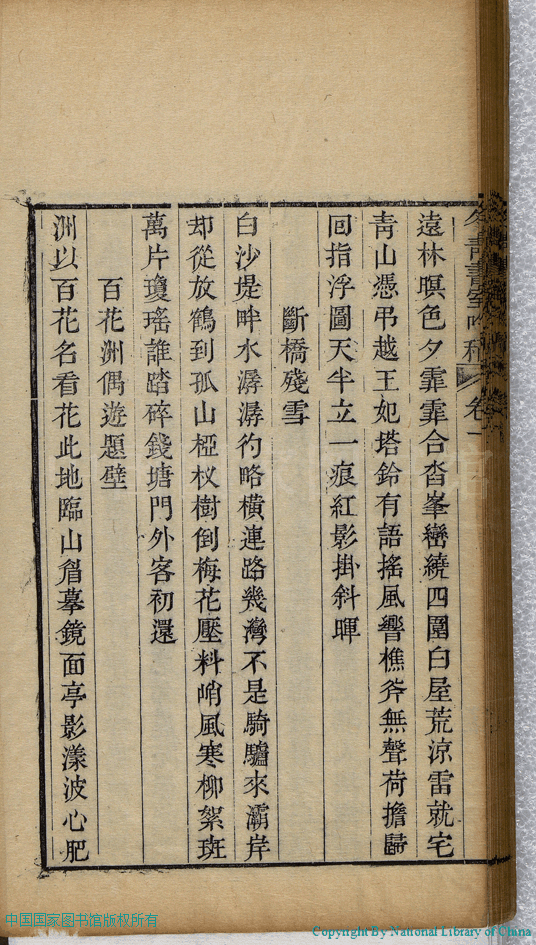 冬青書室吟稿 卷一
遠林暝色夕霏霏合沓峯巒繞四圍白屋荒涼雷就宅
靑山憑弔越王妃塔鈴有語搖風響樵斧無聲荷擔歸
囘指浮圖天半立一痕紅影掛斜暉
斷橋殘雪
白沙堤畔水潺潺彴略橫連路幾灣不是騎驢來灞岸
却從放鶴到孤山椏杈樹倒梅花壓料峭風寒柳絮斑
萬片瓊瑤誰踏碎錢塘門外客初還
百花洲偶遊題壁
洲以百花名看花此地臨山眉摹鏡面亭影漾波心肥
中国国家图书馆版权所有
Copyright By National Library of China